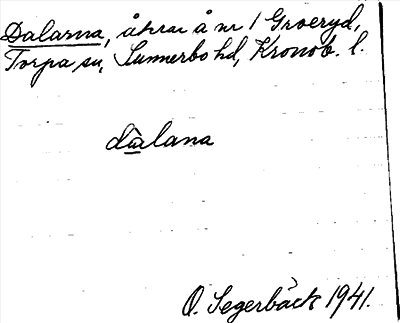 Dalarna, åkrar å nr 1 Groeryd,
Torpa sn, Sunnerbo hd, Kronob. l.
dalana
O. Segerbäck 1941.